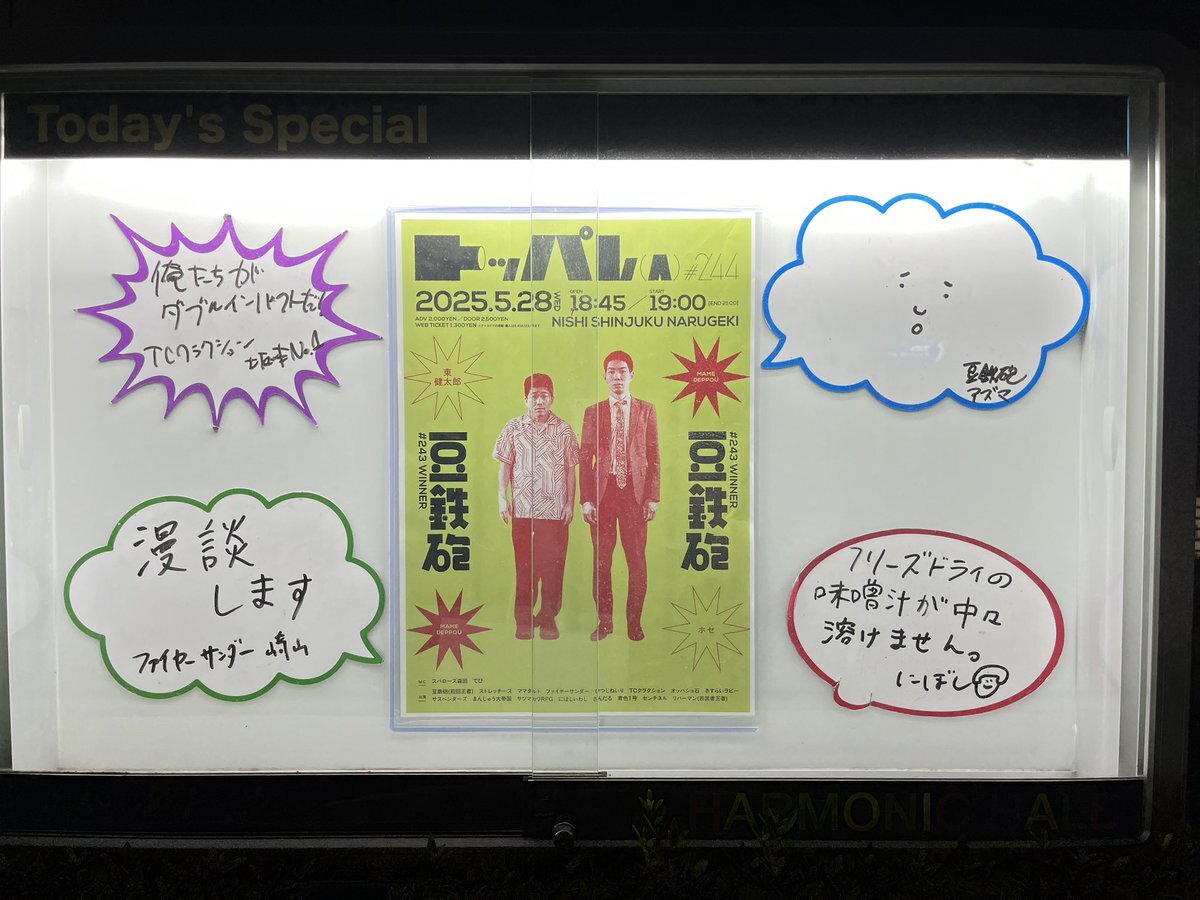 Today's Special
俺たちが
ダブルインパクトだ!
TCクラクション 坂本No.1
漫談
します
ファイヤーサンダー 﨑山
トッパレ(A)#244
2025.5.28 WED OPEN 18:45 / START 19:00 [END 21:00]
ADV 2,000YEN / DOOR 2,500YEN
WEB TICKET 1,300YEN
NISHI SHINJUKU NARUGEKI
東
健太郎
MAME
DEPPOU
#243 WINNER
豆鉄砲
#243 WINNER
豆鉄砲
MAME
DEPPOU
ホセ
MC スパローズ森田 てひ
出演 豆鉄砲(前回王者) ストレッチーズ ママタルト ファイヤーサンダー ひつじねいり TCクラクション オッパショ石 きすらいラビー
サスペンダーズ まんじゅう大帝国 サツマカワRPG にぼしいわし さんだる 青色1号 センチネル リバーマン(若武者王者)
豆鉄砲
アズマ
フリーズドライの
味噌汁が中々
溶けません。
にぼし
HARMONIC HALL